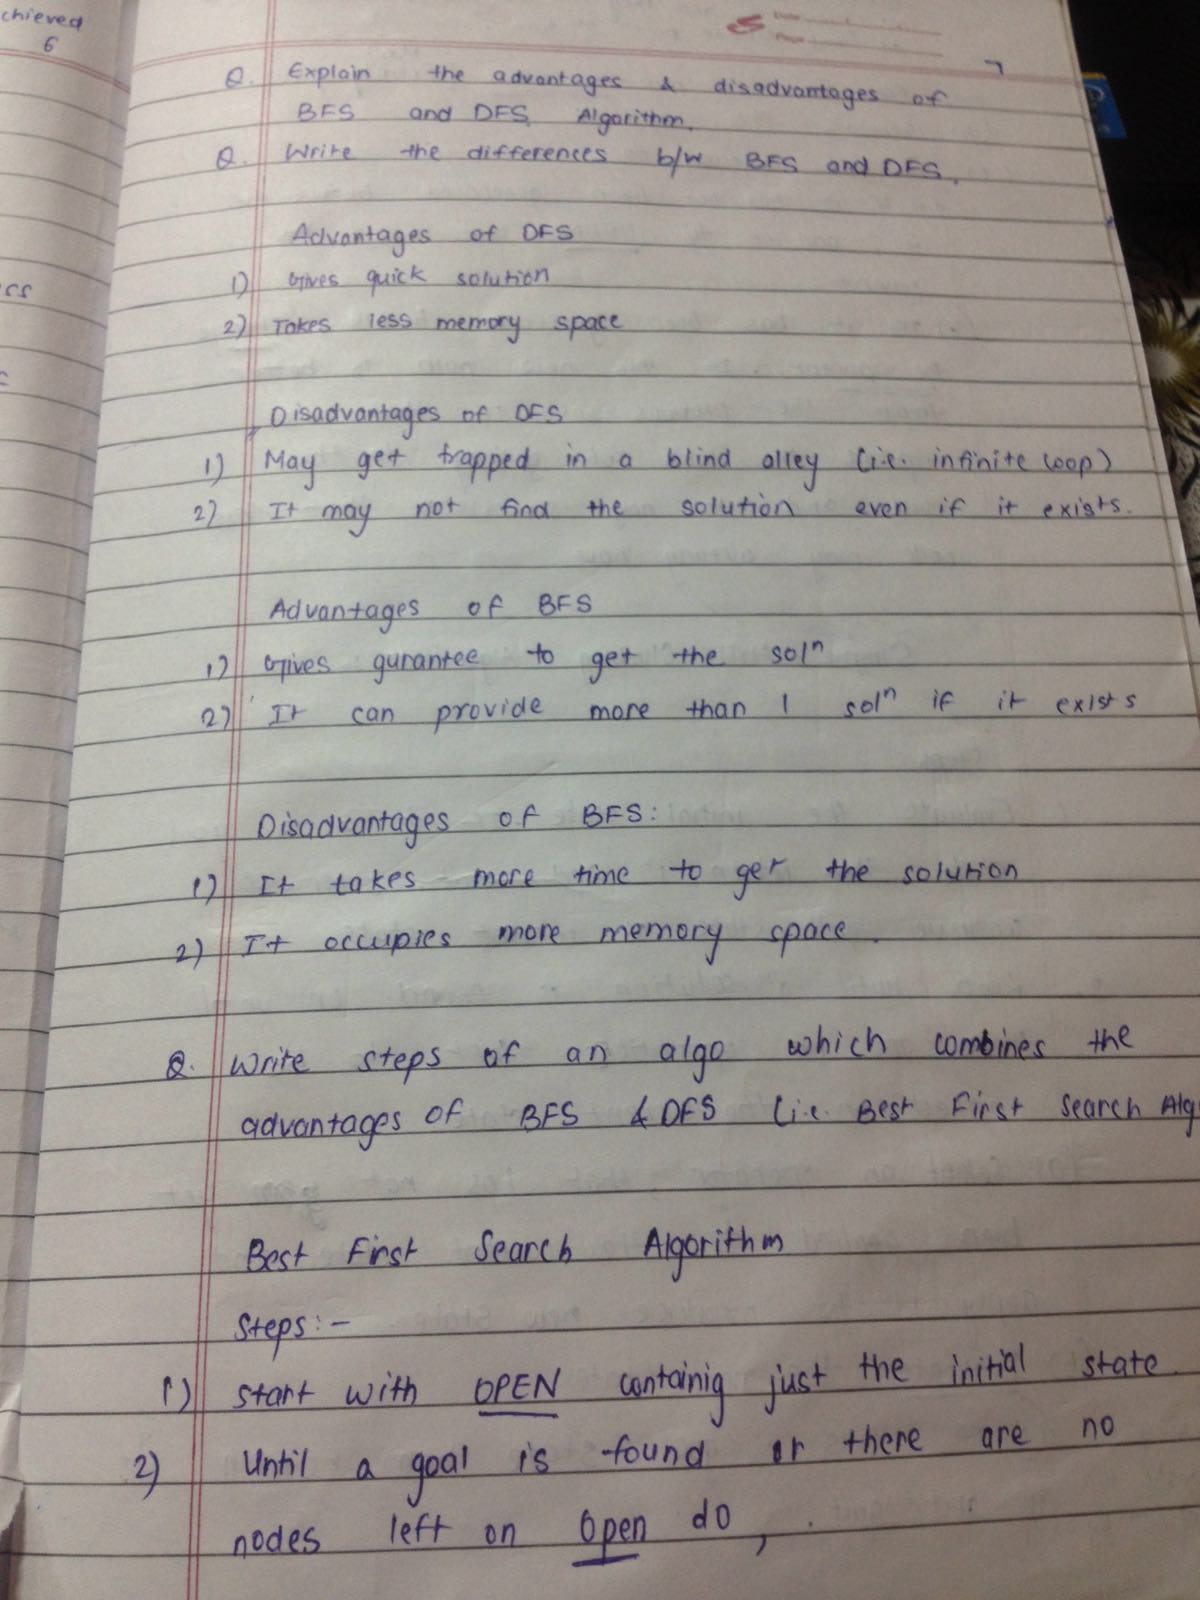 chieved
6
7
Q. Explain the advantages & disadvantages of
BFS and DFS Algorithm.
Q. Write the differences b/w BFS and DFS.
Advantages of DFS
1) Gives quick solution
2) Takes less memory space
Disadvantages of DFS
1) May get trapped in a blind alley (i.e. infinite loop)
2) It may not find the solution even if it exists.
Advantages of BFS
1) Gives gurantee to get the solⁿ
2) It can provide more than 1 solⁿ if it exists
Disadvantages of BFS:
1) It takes more time to get the solution
2) It occupies more memory space.
Q. Write steps of an algo which combines the
advantages of BFS & DFS (i.e. Best First Search Alg
Best First Search Algorithm
Steps:-
1) start with OPEN containig just the initial state.
2) Until a goal is found or there are no
nodes left on Open do,